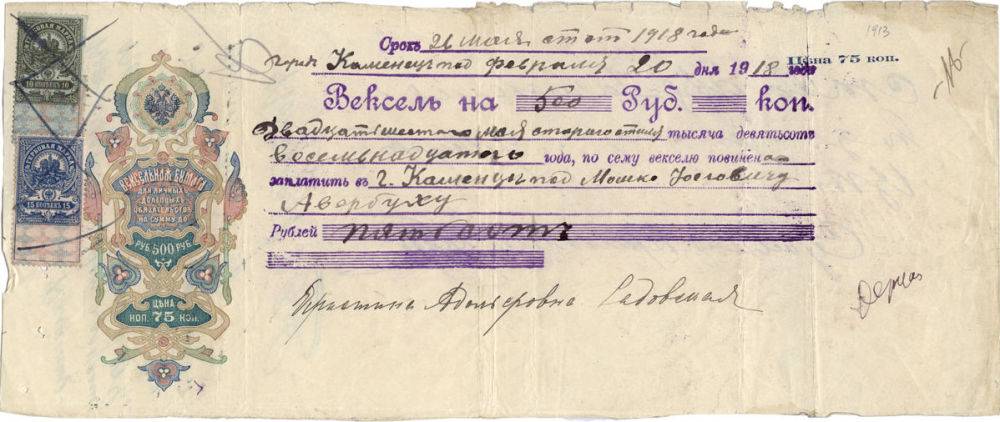 ГЕРБОВАЯ МАРКА
10 КОПѢЕКЪ 10
ГЕРБОВАЯ МАРКА
15 КОПѢЕКЪ 15
ВЕКСЕЛЬНАЯ БУМАГА
ДЛЯ ЛИЧНЫХЪ
ДОЛГОВЫХЪ
ОБЯЗАТЕЛЬСТВЪ
НА СУММУ ДО
РУБ. 500 РУБ.
ЦѢНА
КОП. 75 КОП.
1913
Срокъ 26 мая ст ст 1918 года
Каменецъ под февраля 20 дня 1918 года
Цѣна 75 коп.
Вексель на 500 Руб. коп.
Двадцать шестого мая старого стиля тысяча девятьсотъ
восемьнадцатого года, по сему векселю повинена
заплатить въ г. Каменецъ под Мошко Іосеовичу
Авербуху
Рублей пятьсотъ
Адольфовна Садовская